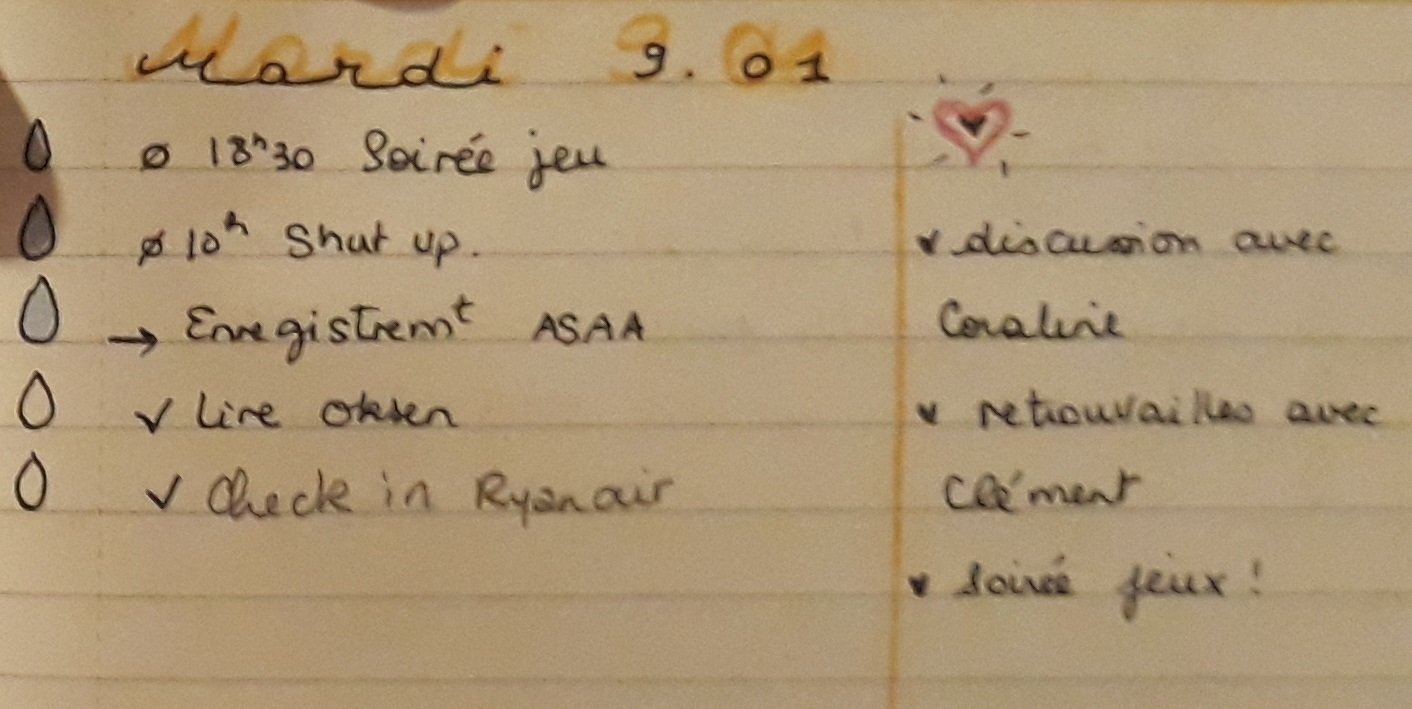 Mardi 9.01
ø 18h30 Soirée jeu
ø 10h Shut up.
→ Enregistremt ASAA
✓ Lire oksen
✓ Check in Ryanair
discussion avec
Coraline
retrouvailles avec
Clément
soirée jeux !